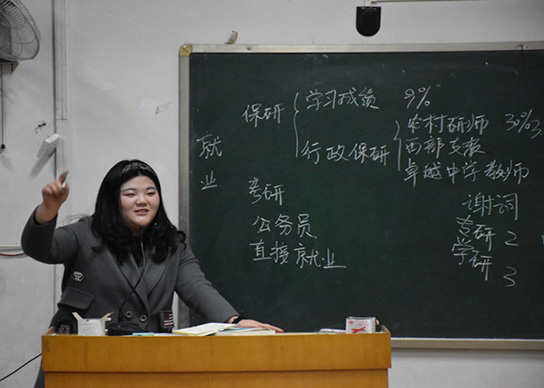 就业
保研
学习成绩 9%
行政保研
农村研师 30%
西部支教
卓越中学教师
考研
公务员
直接就业
谢词
专研 2
学研 3